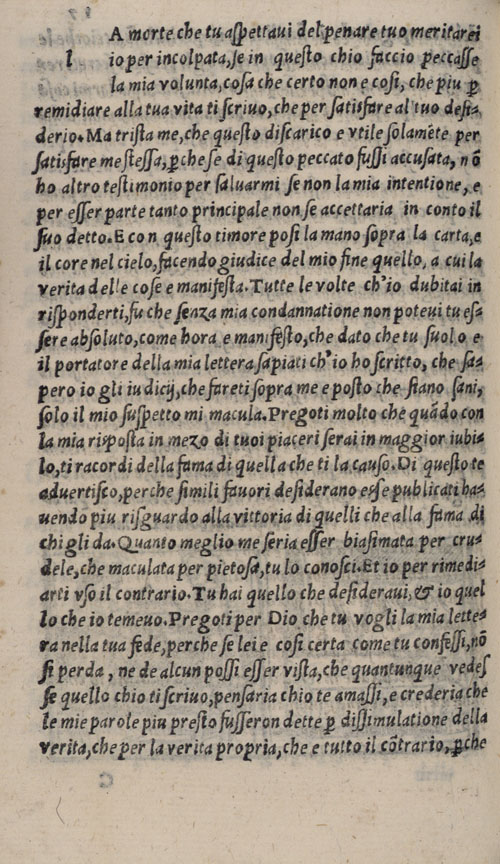 A morte che tu aſpettaui del penare tuo meritarei
l io per incolpata, ſe in queſto chio faccio peccaſſe
la mia volunta, coſa che certo non e coſi, che piu ꝑ
remidiare alla tua vita ti ſcriuo, che per ſatisfare al tuo deſi-
derio. Ma triſta me, che queſto diſcarico e vtile ſolamēte per
ſatisfare me ſteſſa, ꝑche ſe di queſto peccato fuſſi accuſata, nō
ho altro teſtimonio per ſaluarmi ſe non la mia intentione, e
per eſſer parte tanto principale non ſe accettaria in conto il
ſuo detto. E con queſto timore poſi la mano ſopra la carta, e
il core nel cielo, facendo giudice del mio fine quello, a cui la
verita delle coſe e manifeſta. Tutte le volte ch'io dubitai in
riſponderti, fu che ſenza mia condannatione non poteui tu eſ-
ſere abſoluto, come hora e manifeſto, che dato che tu ſuolo e
il portatore della mia lettera ſapiati ch'io ho ſcritto, che ſa-
pero io gli iudicij, che fareti ſopra me e poſto che ſiano ſani,
ſolo il mio ſuſpetto mi macula. Pregoti molto che quādo con
la mia riſpoſta in mezo di tuoi piaceri ſerai in maggior iubi-
lo, ti racordi della fama di quella che ti la cauſo. Di queſto te
aduertiſco, perche ſimili fauori deſiderano eſſe publicati ha-
uendo piu riſguardo alla vittoria di quelli che alla fama di
chi gli da. Quanto meglio me ſeria eſſer biaſimata per cru-
dele, che maculata per pietoſa, tu lo conoſci. Et io per rimedi-
arti vſo il contrario. Tu hai quello che deſideraui, & io quel
lo che io temeuo. Pregoti per Dio che tu vogli la mia lette-
ra nella tua fede, perche ſe lei e coſi certa come tu confeſſi, nō
ſi perda, ne de alcun poſſi eſſer viſta, che quantunque vedeſ
ſe quello chio ti ſcriuo, penſaria chio te amaſſi, e crederia che
le mie parole piu preſto fuſſeron dette ꝑ diſſimulatione della
verita, che per la verita propria, che e tutto il cōtrario, ꝑche